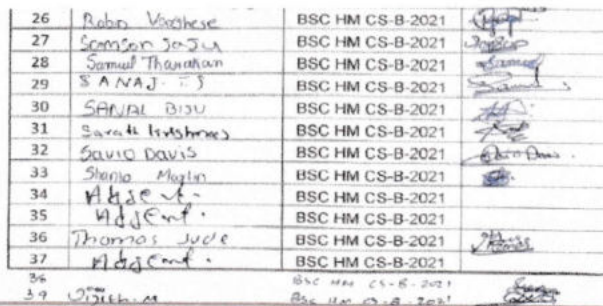 26 Robin Varghese BSC HM CS-B-2021
27 Samson Saju BSC HM CS-B-2021
28 Samuel Tharakan BSC HM CS-B-2021
29 SANAJ. T.S BSC HM CS-B-2021
30 SANAL BIJU BSC HM CS-B-2021
31 Sarath BSC HM CS-B-2021
32 SAVIO DAVIS BSC HM CS-B-2021
33 BSC HM CS-B-2021
34 Absent. BSC HM CS-B-2021
35 Absent. BSC HM CS-B-2021
36 Thomas Jude BSC HM CS-B-2021
37 Absent. BSC HM CS-B-2021
38 BSC HM CS-B-2021
39 BSC HM CS-B-2021